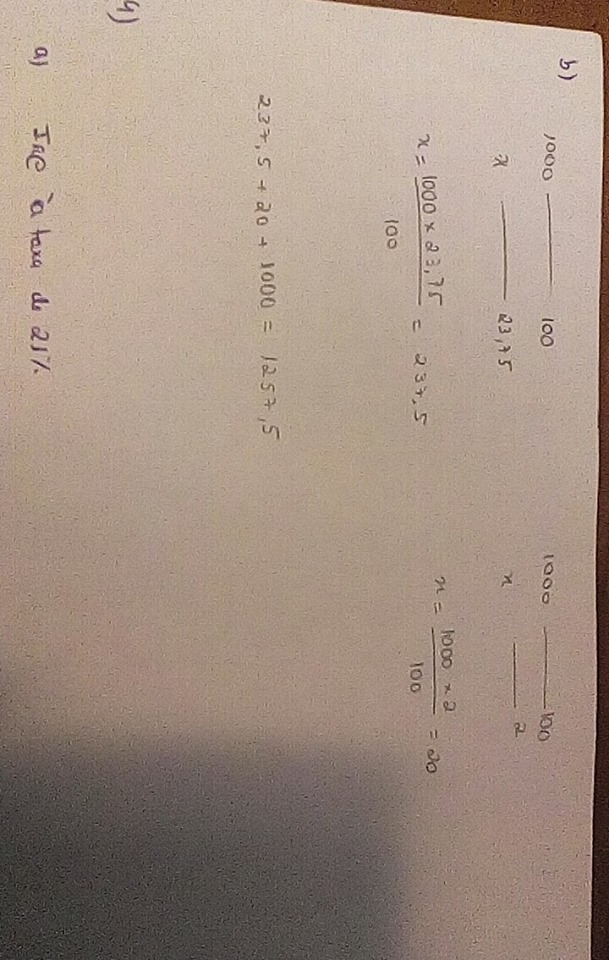 b)
1000 ——— 100
x ——— 23,75
x = 1000 × 23,75 / 100 = 237,5
1000 ——— 100
x ——— 2
x = 1000 × 2 / 100 = 20
237,5 + 20 + 1000 = 1257,5
4)
a) IRC à taxa de 21%